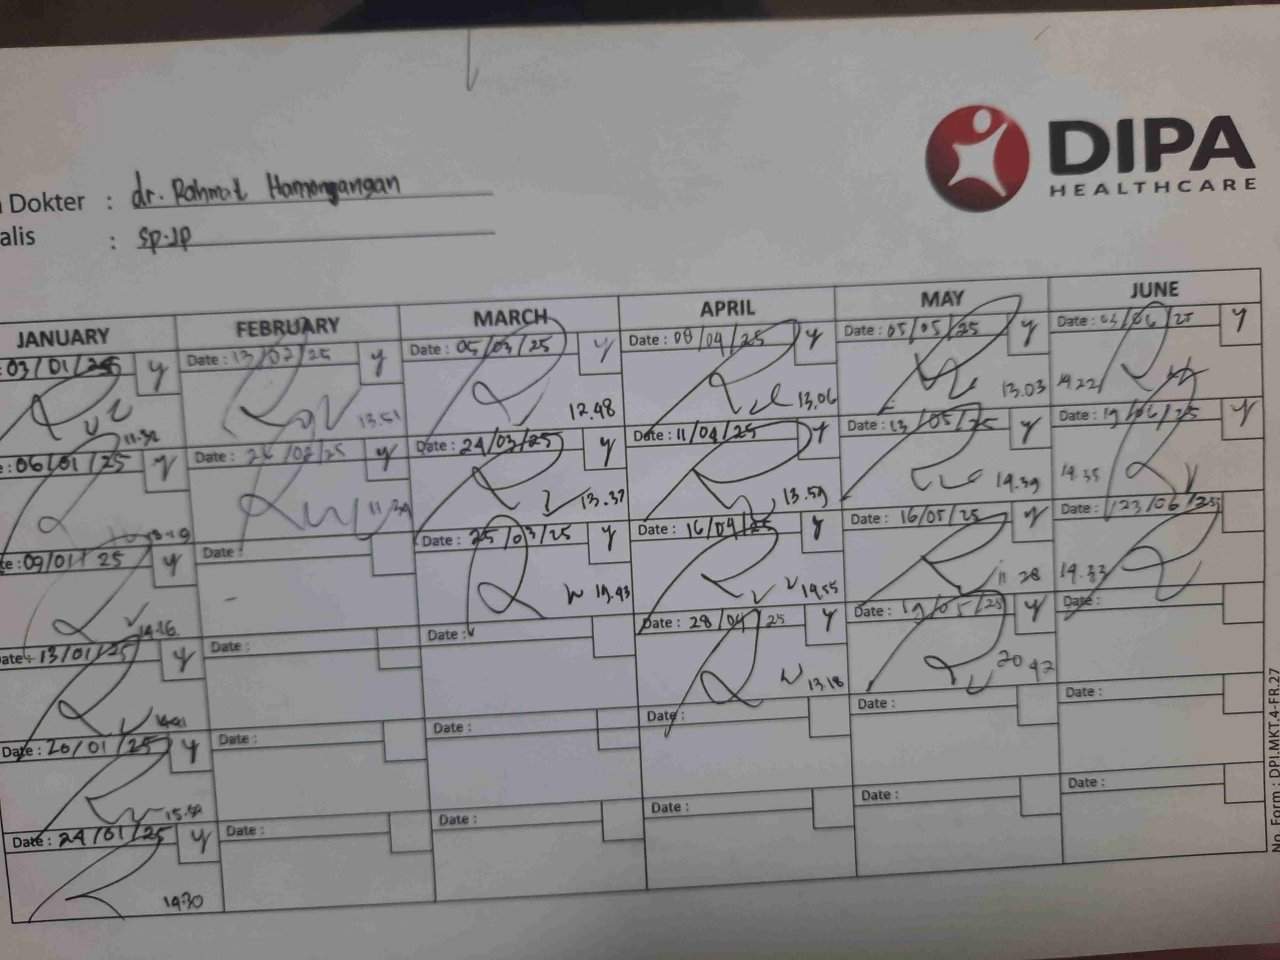 DIPA
HEALTHCARE
Dokter : dr. Rahmat Hamonangan
alis : SP.JP
JANUARY FEBRUARY MARCH APRIL MAY JUNE
: 03/01/25 y Date : 13/02/25 y Date : 05/03/25 y Date : 08/04/25 y Date : 05/05/25 y Date : /06/25 y
11.32 13.51 12.48 13.06 13.03 14.22
: 06/01/25 y Date : /02/25 y Date : 24/03/25 y Date : 11/04/25 y Date : 13/05/25 y Date : 19/06/25 y
11.39 13.37 13.59 14.39 14.35
te : 09/01/25 y Date : Date : 25/03/25 y Date : 16/04/25 y Date : 16/05/25 y Date : 23/06/25
14.16 - 19.43 14.55 11 28 14.33
Date : 13/01/25 y Date : Date : Date : 28/04/25 y Date : 19/05/25 y Date :
13.18 20 42
Date : 20/01/25 y Date : Date : Date : Date : Date :
15.52
Date : 24/01/25 y Date : Date : Date : Date : Date :
14.30
No. Form : DPI.MKT.4-FR.27